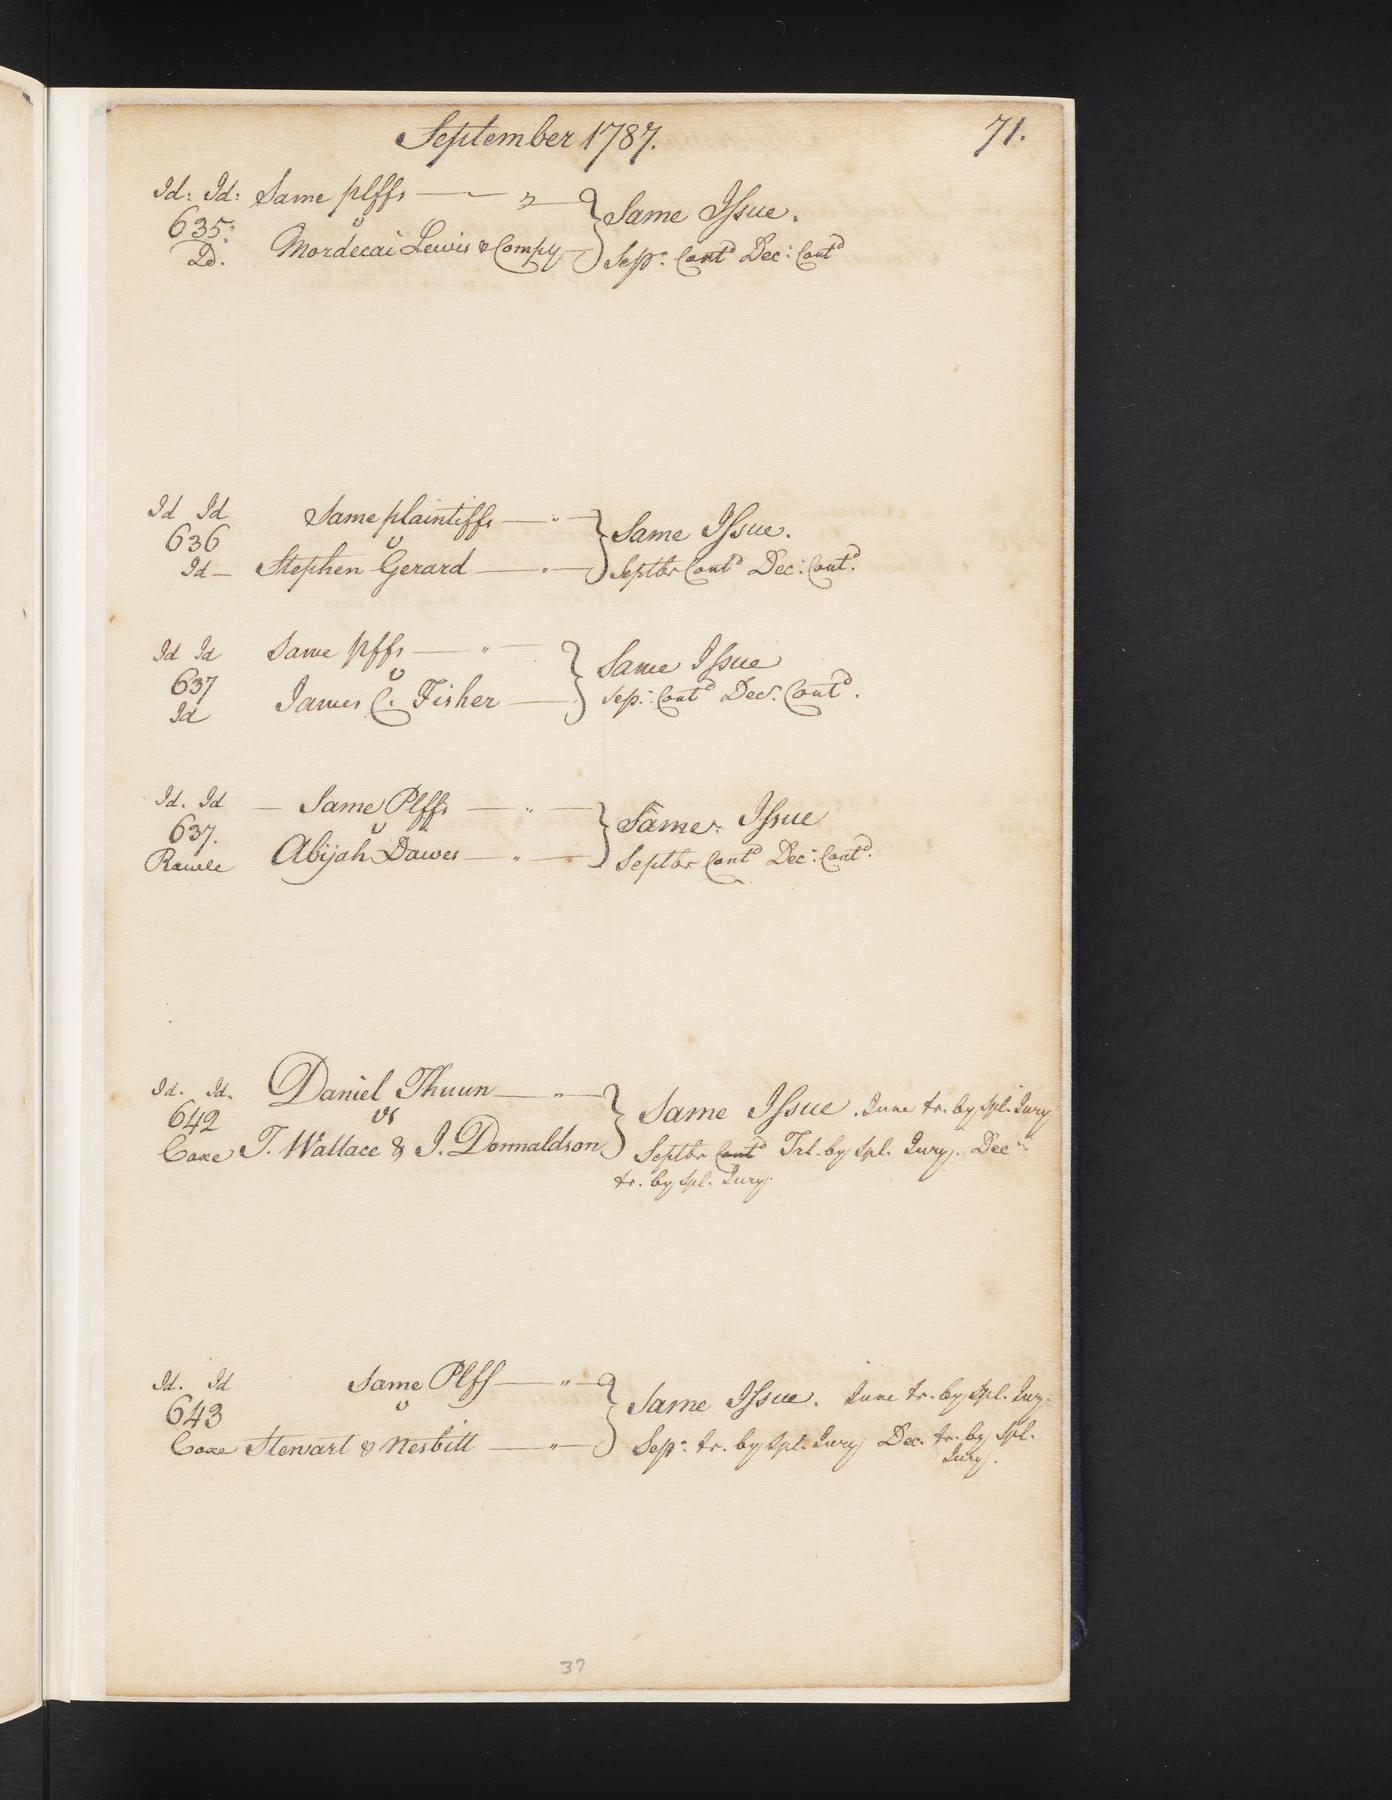 September 1787. 71.
Id: Id: Same plffs
635. v Same Issue.
Id. Mordecai Lewis & Compy Sepr. Contd Dec: Contd
Id Id Same plaintiffs
636 v Same Issue.
Id Stephen Gerard Septbr Contd Dec: Contd.
Id Id Same pffs
637 v Same Issue
Id James C. Fisher Sep: Contd Decr. Contd.
Id. Id Same Plffs
637. v Same. Issue
Rawle Abijah Dawes Septbr Contd Dec: Contd.
Id. Id. Daniel Thuun
642 vs Same Issue. June tr. by Spl. Jury
Coxe T. Wallace & J. Donnaldson Septbr Contd Trl. by Spl. Jury. Dec
tr. by Spl. Jury.
Id. Id Same Plff
643 v Same Issue. June tr. by Spl. Jury.
Coxe Stewart & Nesbitt Sepr. tr. by Spl. Jury Dec. tr. by Spl.
Jury.
37